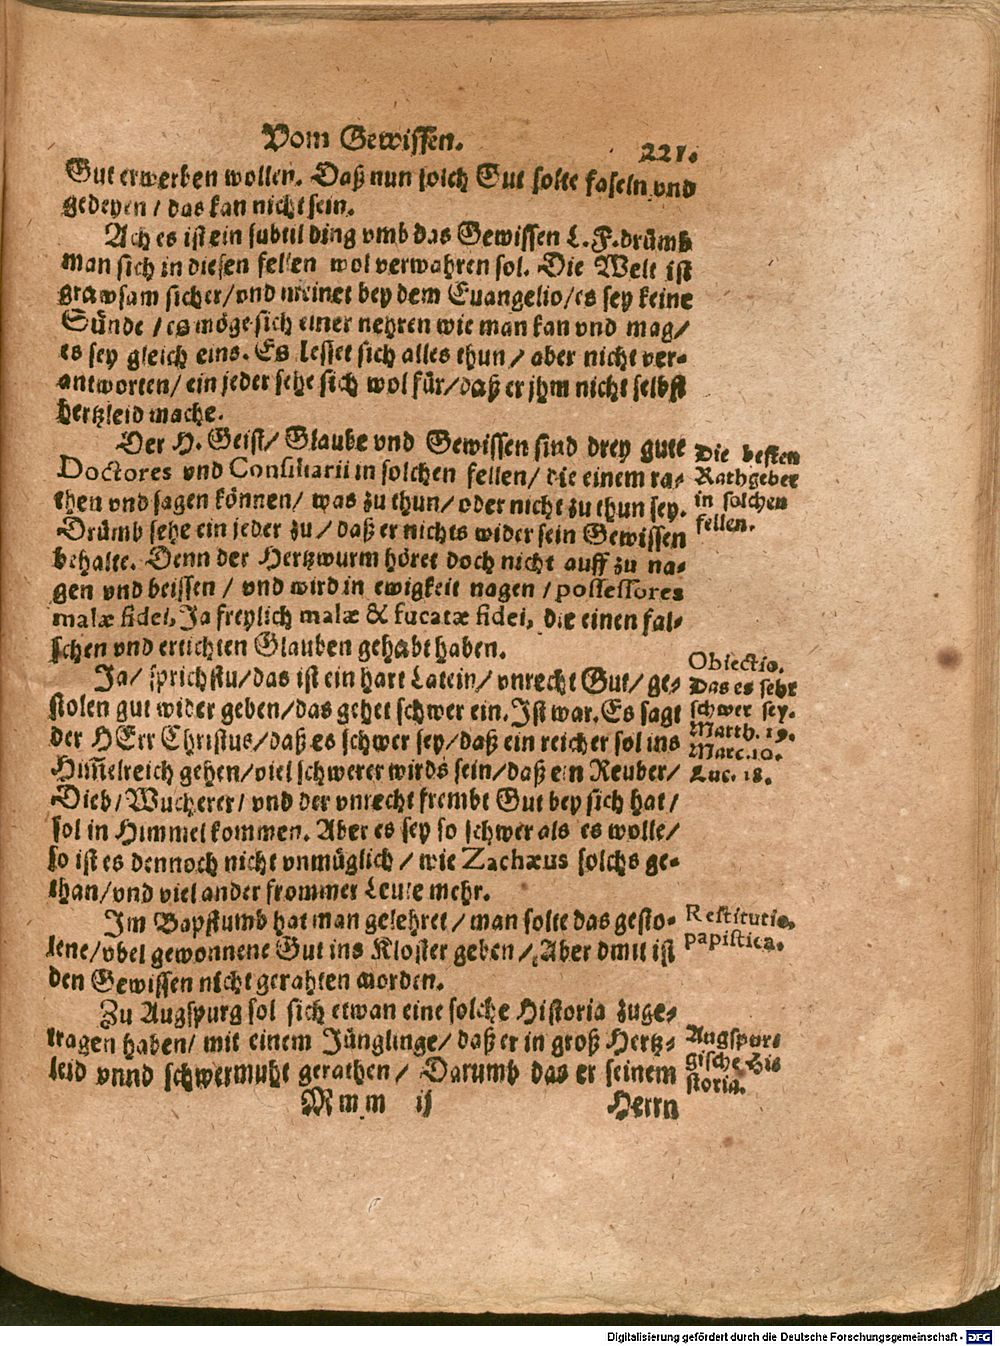 Vom Gewissen.
221.
Gut erwerben wollen. Daß nun solch Gut solte faseln vnd
gedeyen / das kan nicht sein.
Ach es ist ein subtil ding vmb das Gewissen L. F. drümb
man sich in diesen fellen wol verwahren sol. Die Welt ist
grawsam sicher / vnd meinet bey dem Euangelio / es sey keine
Sünde / es möge sich einer nehren wie man kan vnd mag /
es sey gleich eins. Es lesset sich alles thun / aber nicht ver-
antworten / ein jeder sehe sich wol für / daß er jhm nicht selbst
hertzleid mache.
Der H. Geist / Glaube vnd Gewissen sind drey gute
Doctores vnd Consiliarii in solchen fellen / die einem ra-
then vnd sagen können / was zu thun / oder nicht zu thun sey.
Drümb sehe ein jeder zu / daß er nichts wider sein Gewissen
behalte. Denn der Hertzwurm höret doch nicht auff zu na-
gen vnd beissen / vnd wird in ewigkeit nagen / possessores
malæ fidei, Ja freylich malæ & fucatæ fidei, die einen fal-
schen vnd ertichten Glauben gehabt haben.
Die besten
Rathgeber
in solchen
fellen.
Ja / sprichstu / das ist ein hart Latein / vnrecht Gut / ge-
stolen gut wider geben / das gehet schwer ein. Ist war. Es sagt
der HErr Christus / daß es schwer sey / daß ein reicher sol ins
Him̃elreich gehen / viel schwerer wirds sein / daß ein Reuber /
Dieb / Wucherer / vnd der vnrecht frembt Gut bey sich hat /
sol in Himmel kommen. Aber es sey so schwer als es wolle /
so ist es dennoch nicht vnmüglich / wie Zachæus solchs ge-
than / vnd viel ander frommer Leute mehr.
Obiectio.
Das es sehr
schwer sey.
Matth. 19.
Marc. 10.
Luc. 18.
Im Bapstumb hat man gelehret / man solte das gesto-
lene / vbel gewonnene Gut ins Kloster geben / Aber dmit ist
den Gewissen nicht gerahten worden.
Restitutio
papistica.
Zu Augspurg sol sich etwan eine solche Historia zuge-
tragen haben / mit einem Jünglinge / daß er in groß Hertz-
leid vnnd schwermuht gerathen / Darumb das er seinem
Augspur-
gische Hi-
storia.
Mmm ij
Herrn
Digitalisierung gefördert durch die Deutsche Forschungsgemeinschaft - DFG